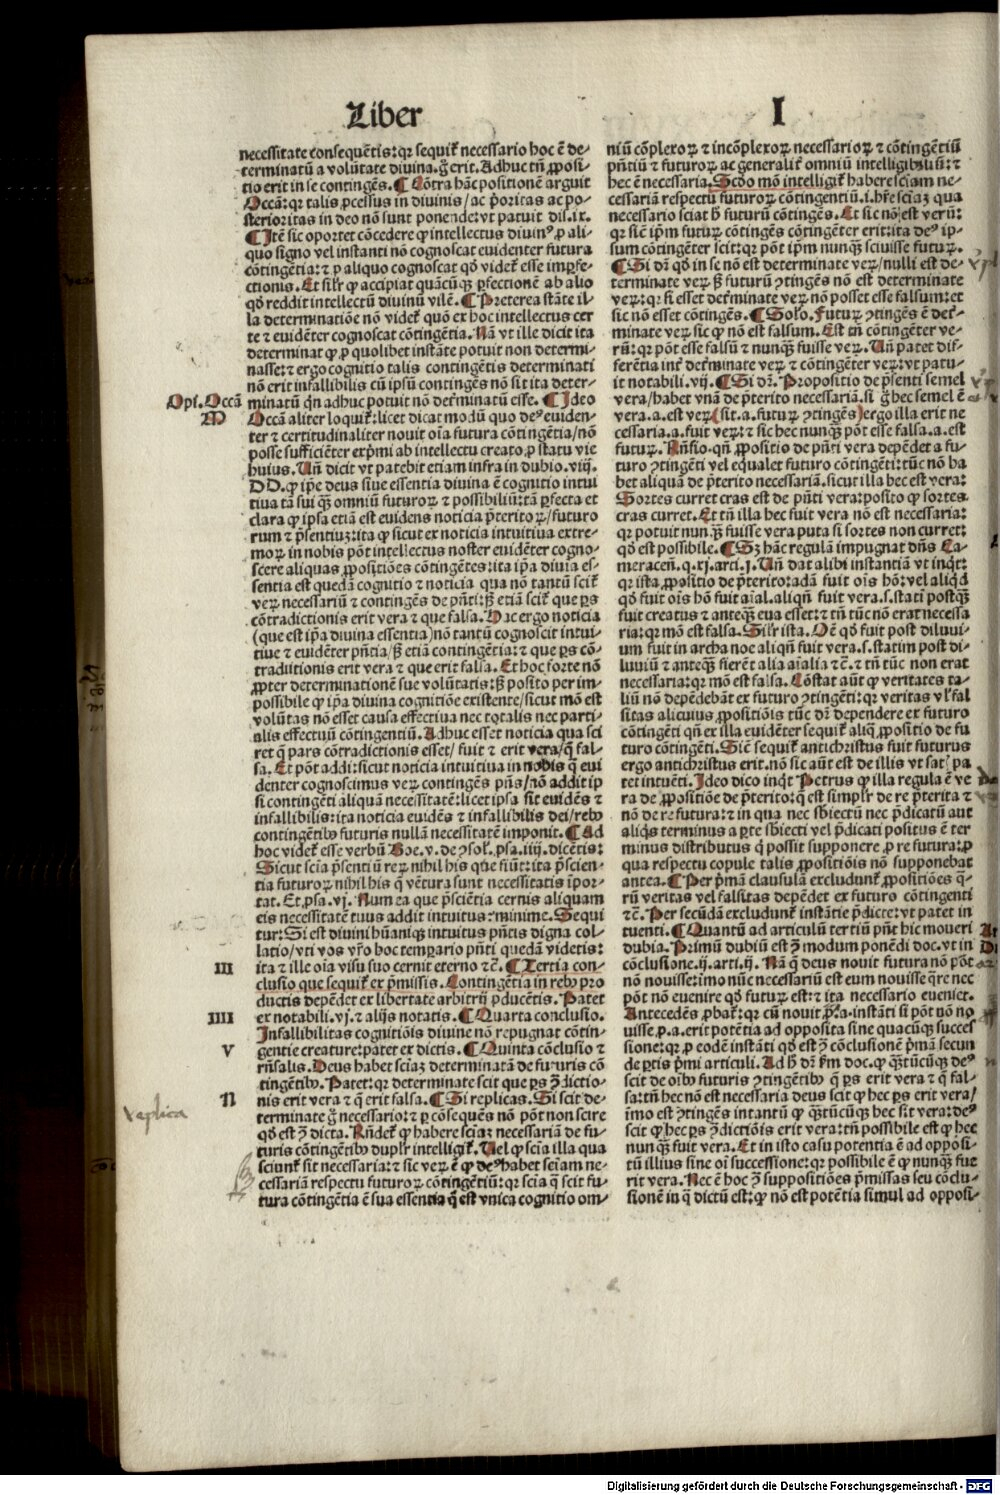 Liber
I
necessitate consequētis: qꝛ sequit᷑ necessario hoc ē de-
terminatū a volūtate divina. g̃ erit. Adhuc tn̄ ꝓposi-
tio erit in se contingēs. ¶ Cōtra hāc positionē arguit
Occā: qꝛ talis ꝓcessus in divinis / ac p̄oritas ac po-
sterioritas in deo nō sunt ponende: vt patuit dis. ix.
¶ Itē sic oportet cōcedere ꝙ intellectus divinꝰ ꝓ ali-
quo signo vel instanti nō cognoscat evidenter futura
cōtingētia: ⁊ ꝓ aliquo cognoscat qd̄ videt᷑ esse imꝑfe-
ctionis. Et silr̄ ꝙ accipiat quācūqꝫ ꝑfectionē ab alio
qd̄ reddit intellectū divinū vilē. ¶ Preterea stāte il-
la determinatiōe nō videt᷑ quō ex hoc intellectus cer
te ⁊ evidēter cognoscat cōtingētia. Nā vt ille dicit ita
determinat ꝙ ꝓ quolibet instāte potuit non determi-
nasse: ⁊ ergo cognitio talis contingētis determinati
nō erit infallibilis cū ipsū contingēs nō sit ita deter-
Opi. Occā
minatū qn̄ adhuc potuit nō det̄minatū esse. ¶ Ideo
M
Occā aliter loquit᷑: licet dicat modū quo deꝰ eviden-
ter ⁊ certitudinaliter nouit oīa futura cōtingētia / nō
posse sufficiēter exp̄mi ab intellectu creato ꝓ statu vie
huius. Un̄ dicit vt patebit etiam infra in dubio. viij.
DD. ꝙ ip̄e deus siue essentia divina ē cognitio intui
tiua tā sui qꝫ omniū futuroꝝ ⁊ possibiliū: tā ꝑfecta et
clara ꝙ ipsa etiā est evidens noticia p̄teritoꝝ / futuro
rum ⁊ p̄sentiuꝫ: ita ꝙ sicut ex noticia intuitiua extre-
moꝝ in nobis pōt intellectus noster euidēter cogno-
scere aliquas ꝓpositiōes cōtingētes: ita ip̄a diuīa es-
sentia est quedā cognitio ⁊ noticia qua nō tantū scit᷑
veꝝ necessariū ⁊ contingēs de pn̄ti: sꝫ etiā scit᷑ que ꝑs
cōtradictionis erit vera ⁊ que falsa. Hac ergo noticia
(que est ip̄a divina essentia) nō tantū cognoscit intui-
tiue ⁊ euidēter pn̄tia / sꝫ etiā contingētia: ⁊ que ꝑs cō-
traductionis erit vera ⁊ que erit falsa. Et hoc forte nō
ꝓpter determinationē sue volūtatis: sꝫ posito per im-
possibile ꝙ ip̄a divina cognitiōe existente / sicut mō est
volūtas nō esset causa effectiua nec totalis nec parti-
alis effectuū cōtingentiū. Adhuc esset noticia qua sci
ret q̄ pars cōtradictionis esset / fuit ⁊ erit vera / q̄ fal-
sa. Et pōt addi: sicut noticia intuitiua in nobis q̄ eui
denter cognoscimus veꝝ contingēs pn̄s / nō addit ip
si contingēti aliquā necessitatē: licet ipsa sit euidēs ⁊
infallibilis: ita noticia euidēs ⁊ infallibilis dei / rebꝰ
contingētibꝰ futuris nullā necessitatē imponit. ¶ Ad
hoc videt᷑ esse verbū Boe. v. de ꝯsol. ꝓsa. iiij. dicētis:
Sicut sciā p̄sentiū reꝝ nihil his que fiūt: ita p̄scien-
tia futuroꝝ nihil his q̄ vētura sunt necessitatis īpor-
tat. Et ꝓsa. vj. Num ea que p̄sciētia cernis aliquam
eis necessitatē tuus addit intuitus: minime. Sequi
tur: Si est divini hūaniqꝫ intuitus pn̄tis digna col-
latio / vti vos vr̄o hoc temꝑario pn̄ti quedā videtis:
III
ita ⁊ ille oīa visu suo cernit eterno ⁊c̄. ¶ Tertia con-
clusio que sequit᷑ ex p̄missis. Contingētia in rebꝰ pro
ductis depēdet ex libertate arbitrij ꝓducētis. Patet
IIII
ex notabili. vj. ⁊ alijs notatis. ¶ Quarta conclusio.
Infallibilitas cognitiōis diuine nō repugnat cōtin-
V
gentie creature: patet ex dictis. ¶ Quinta cōclusio ⁊
rn̄salis. Deus habet sciaꝫ determinatā de futuris cō
tingētibꝰ. Patet: qꝛ determinate scit que ꝑs ꝯ̄dictio-
N
nis erit vera ⁊ q̄ erit falsa. ¶ Si replicas. Si scit de-
replica
terminate g̃ necessario: ⁊ ꝑ cōsequēs nō pōt non scire
qd̄ est ꝯ̄ dicta. Rn̄det᷑ ꝙ habere sciaꝫ necessariā de fu-
turis cōtingētibꝰ duplr̄ intelligit᷑. Uel ꝙ sciā illa qua
sciunt᷑ sit necessaria: ⁊ sic veꝝ ē ꝙ deꝰ habet sciam ne-
cessariā respectu futuroꝝ cōtingētiū: qꝛ sciā q̄ scit fu-
tura cōtingētia ē sua essentia q̄ est vnica cognitio om-
niū cōplexoꝝ ⁊ incōplexoꝝ necessarioꝝ ⁊ cōtingētiū
pn̄tiū ⁊ futuroꝝ ac generalit᷑ omniū intelligibiliū: ⁊
hec ē necessaria. Scd̄o mō intelligit᷑ habere sciam ne-
cessariā respectu futuroꝝ contingentiū. i. hr̄e sciaꝫ qua
necessario sciat hꝰ futurū cōtingēs. Et sic nō est verū:
qꝛ sicut ip̄m futuꝝ cōtingēs cōtingēter erit: ita deꝰ ip-
sum cōtingēter scit: qꝛ pōt ip̄m nunqꝫ sciuisse futuꝝ.
¶ Si dr̄ qd̄ in se nō est determinate veꝝ / nulli est de-
terminate veꝝ sꝫ futurū ꝯtingēs nō est determinate
veꝝ: qꝛ si esset det̄minate veꝝ nō posset esse falsum: et
sic nō esset cōtingēs. ¶ Solo. Futuꝝ ꝯtingēs ē det̄-
minate veꝝ sic ꝙ nō est falsum. Est tn̄ cōtingēter ve-
rū: qꝛ pōt esse falsū ⁊ nunqꝫ fuisse veꝝ. Un̄ patet dif-
ferētia int̄ det̄minate veꝝ ⁊ cōtingēter veꝝ: vt patu-
it notabili. vij. ¶ Si dr̄. Propositio de p̄senti semel
vera / habet vnā de p̄terito necessariā. si g̃ hec semel ē
vera. a. est veꝝ (sit. a. futuꝝ ꝯtingēs) ergo illa erit ne
cessaria. a. fuit veꝝ: ⁊ sic hec nunqꝫ pōt esse falsa. a. est
futuꝝ. Rn̄sio. qn̄ ꝓpositio de pn̄ti vera depēdet a fu-
turo ꝯtingēti vel equalet futuro cōtingēti: tūc nō ha
bet aliquā de p̄terito necessariā. sicut illa hec est vera:
Sortes curret cras est de pn̄ti vera: posito ꝙ sortes
cras curret. Et tn̄ illa hec fuit vera nō est necessaria:
qꝛ potuit nunqꝫ fuisse vera puta si sortes non curret:
qd̄ est possibile. ¶ Sꝫ hāc regulā impugnat dn̄s Ca-
meraceñ. q. xj. arti. j. Un̄ dat alibi instantiā vt inqt̄:
qꝛ ista ꝓpositio de p̄terito: adā fuit oīs hō: vel aliqd̄
qd̄ fuit oīs hō fuit aīal. aliqn̄ fuit vera. s. stati postqꝫ
fuit creatus ⁊ anteqꝫ eua esset: ⁊ tn̄ tūc nō erat necessa
ria: qꝛ mō est falsa. Silr̄ ista. Oē qd̄ fuit post diluui-
um fuit in archa noe aliqn̄ fuit vera. s. statim post di-
luuiū ⁊ anteqꝫ fierēt alia aīalia ⁊c̄. ⁊ tn̄ tūc non erat
necessaria: qꝛ mō est falsa. Cōstat aūt ꝙ veritates ta-
liū nō depēdebāt ex futuro ꝯtingēti: qꝛ veritas vl̄ fal
sitas alicuius ꝓpositiōis tūc dr̄ dependere ex futuro
cōtingēti qn̄ ex illa euidēter sequit᷑ aliq̄ ꝓpositio de fu
turo cōtingēti. Sic sequit᷑ antichristus fuit futurus
ergo antichristus erit. nō sic aūt est de illis vt satꝭ pa
tet intuēti. Ideo dico inqt̄ Petrus ꝙ illa regula ē ve
ra de ꝓpositiōe de p̄terito: q̄ est simplr̄ de re p̄terita ⁊
nō de re futura: ⁊ in qua nec sbiectū nec p̄dicatū aut
aliqs̄ terminus a ꝑte sbiecti vel p̄dicati positus ē ter
minus distributus q̄ possit supponere ꝓ re futura: ꝓ
qua respectu copule talis ꝓpositiōis nō supponebat
antea. ¶ Per p̄mā clausulā excludunt᷑ ꝓpositiōes q̄-
rū veritas vel falsitas depēdet ex futuro cōtingenti
⁊c̄. Per secūdā excludunt᷑ instātie p̄dicte: vt patet in
tuenti. ¶ Quantū ad articulū tertiū pn̄t hic moueri
dubia. Primū dubiū est ꝯ̄ modum ponēdi doc. vt in
cōclusione. ij. arti. ij. Nā q̄ deus nouit futura nō pōt
nō nouisse: imo nūc necessariū est eum nouisse q̄re nec
pōt nō euenire qd̄ futuꝝ est: ⁊ ita necessario eueniet.
Antecedēs ꝓbat᷑: qꝛ cū nouit ꝓ. a. instāti sī pōt nō no
uisse. ꝓ. a. erit potētia ad opposita sine quacūqꝫ succes
sione: qꝛ ꝓ eodē instāti qd̄ est ꝯ̄ cōclusionē p̄mā secun
de ꝑtis p̄mi articuli. Ad hꝰ dr̄ ẜm doc. ꝙ qꝫtūcūqꝫ deꝰ
scit de oībꝰ futuris ꝯtingētibꝰ q̄ ꝑs erit vera ⁊ q̄ fal-
sa: tn̄ hec nō est necessaria deus scit ꝙ hec ꝑs erit vera /
imo est ꝯtingēs intantū ꝙ qꝫtūcūqꝫ hec sit vera: deꝰ
scit ꝙ hec ꝑs ꝯ̄dictiōis erit vera: tn̄ possibile est ꝙ hec
nunqꝫ fuit vera. Et in isto casu potentia ē ad opposi-
tū illius sine oī successione: qꝛ possibile ē ꝙ nunqꝫ fue
rit vera. Nec ē hoc ꝯ̄ suppositiōes p̄missas seu cōclu-
sionē in q̄ dictū est: ꝙ nō est potētia simul ad opposi-
Digitalisierung gefördert durch die Deutsche Forschungsgemeinschaft - DFG